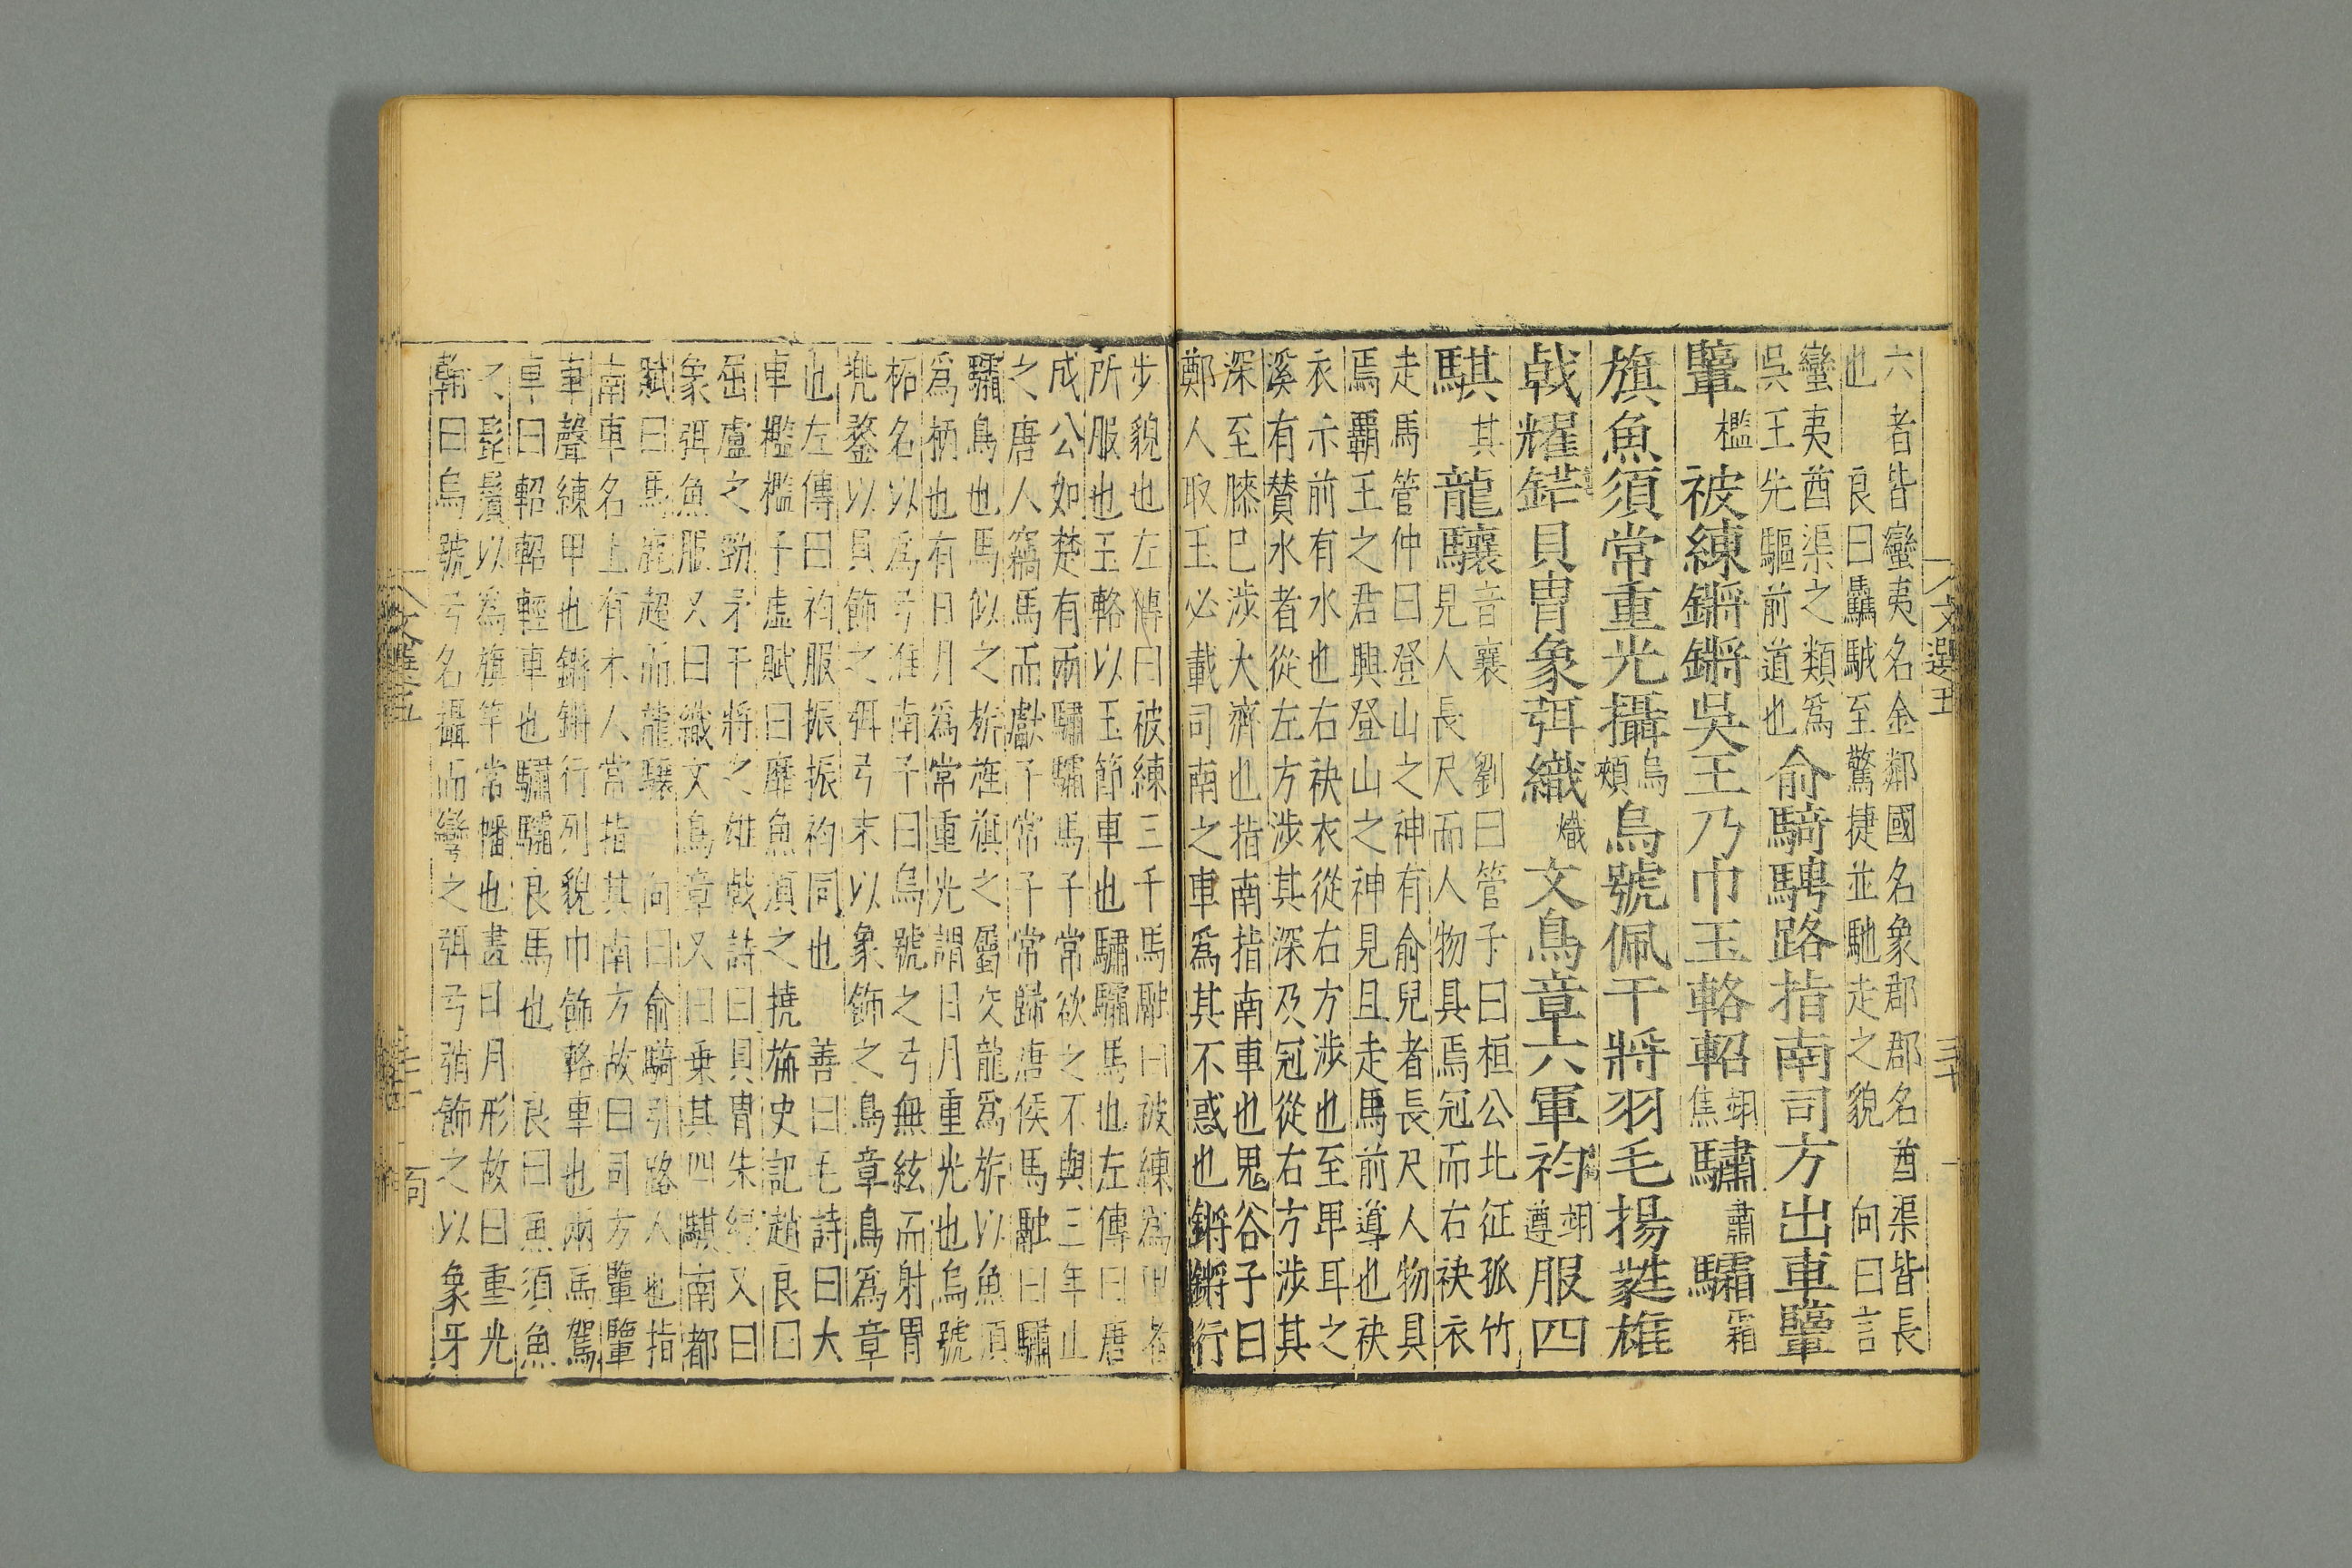 六者皆蠻夷名金鄰國名象郡郡名酋渠皆長
也 良曰驫駥至驚捷並馳走之貌 向曰言
蠻夷酋渠之類爲
吳王先驅前道也
俞騎騁路指南司方出車轞
轞檻被練鏘鏘吳王乃巾玉輅軺翊焦驌肅驦霜
旗魚須常重光攝烏頰烏號佩干將羽毛揚蕤雄
戟耀鋩貝冑象弭織熾文鳥章六軍袀翊遵服四
騏其龍驤音襄
劉曰管子曰桓公北征孤竹
見人人長尺而人人物具焉冠而右袂衣
走馬管仲曰登山之神有俞兒者長尺人物具
焉霸王之君興登山之神見且走馬前導也袂
衣示前有水也右袂衣從右方涉也至卑耳之
溪有贊水者從左方涉其深及冠從右方涉其
深至膝已涉大濟也指南指南車也鬼谷子曰
鄭人取玉必載司南之車爲其不惑也鏘鏘行
文選五 三十
步貌也左傳曰被練三千馬融曰被練爲甲者
所服也玉輅以玉節車也驌驦馬也左傳曰唐
成公如楚有兩驌驦馬子常欲之不與三年止
之唐人竊馬而獻子常子常歸唐侯馬融曰驌
驦鳥也馬似之旂旌旗之屬交龍爲旂以魚須
爲柄也有日月爲常重光謂日月重光也烏號
柘名以爲弓淮南子曰烏號之弓無絃而射冑
兜鍪以貝飾之弭弓末以象飾之鳥章鳥爲章
也左傳曰袀服振振袀同也 善曰毛詩曰大
車檻檻子虛賦曰靡魚須之橈旃史記趙良曰
屈盧之勁矛干將之雄戟詩曰貝冑朱綅又曰
象弭魚服又曰織文鳥章又曰乗其四騏南都
賦曰馬鹿超而龍驤 向曰俞騎引路人也指
南車名上有木人常指其南方故曰司方轞轞
車聲練甲也鏘鏘行列貌巾飾輅車也兩馬駕
車曰軺軺輕車也驌驦良馬也 良曰魚須魚
之髭鬚以爲旗竿常幡也畫日月形故曰重光
翰曰烏號弓名攝而彎之弭弓弰飾之以象牙